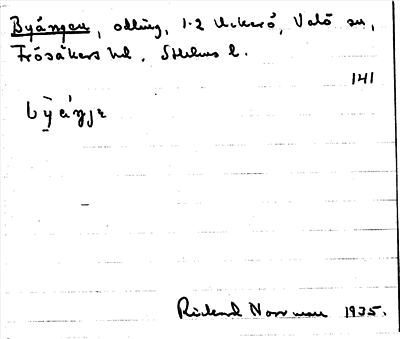 Byängen, odling, 1-2 Uckerö, Valö sn,
Frösåkers hd, Sthlms l.
141
Richard Norrman 1935.